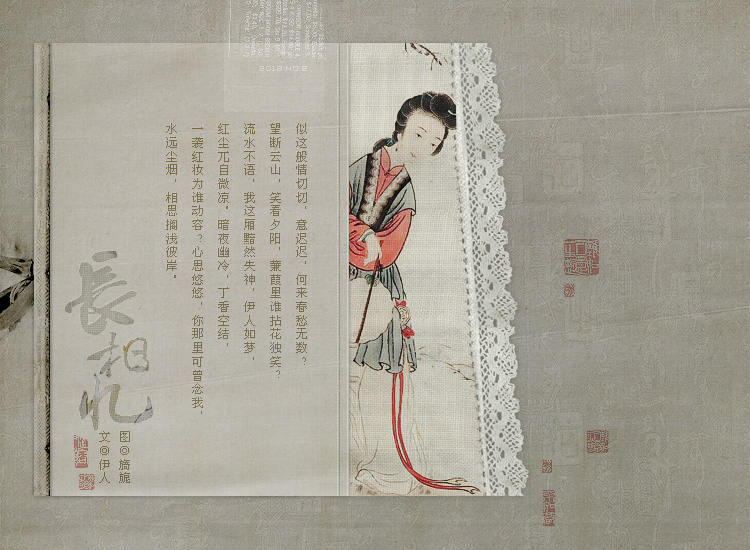 似这般情切切，意迟迟，何来春愁无数？
望断云山，笑看夕阳，蒹葭里谁拈花独笑？
流水不语，我这厢黯然失神，伊人如梦，
红尘兀自微凉，暗夜幽冷，丁香空结，
一袭红妆为谁动容？心思悠悠，你那里可曾念我，
水远尘烟，相思搁浅彼岸。
長相忆
图◎旖旎
文◎伊人